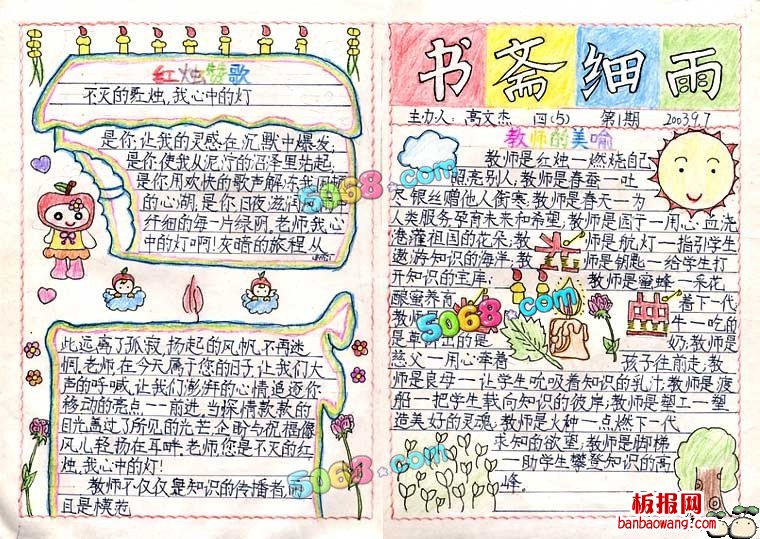 红烛赞歌
不灭的红烛,我心中的灯
是你,让我的灵感在沉默中爆发;
是你,使我从泥泞的沼泽里站起;
是你,用欢快的歌声解冻我
的心潮,是你,日夜滋润
纤细的每一片绿荫,老师,我心
中的灯啊!灰暗的旅程,从
此远离了孤寂,扬起的风帆,不再迷
惘,老师,在今天属于您的日子,让我们大
声的呼喊,让我们澎湃的心情追逐你
移动的亮点——前进,当深情款款的
目光,盖过了所见的光芒,企盼与祝福像
风儿轻扬在耳畔,老师,您是不灭的红
烛,我心中的灯!
教师不仅仅是知识的传播者,而
且是模范
书斋细雨
主办人:高文杰 四(5) 第1期 2003.9.7
教师的美喻
教师是红烛—燃烧自己
照亮别人;教师是春蚕—吐
尽银丝赠他人御寒;教师是春天—为
人类服务,孕育未来和希望;教师是园丁—用心血浇
灌祖国的花朵;教师是航灯—指引学生
遨游知识的海洋;教师是钥匙—给学生打
开知识的宝库;教师是蜜蜂—采花
酿蜜养育着下一代
教师牛—吃的
是草挤出的是奶;教师是
慈父—用心牵着孩子往前走;教
师是良母—让学生吮吸着知识的乳汁;教师是渡
船—把学生载向知识的彼岸;教师是塑工—塑
造美好的灵魂;教师是火种—点燃下一代
求知的欲望;教师是脚梯
—助学生攀登知识的高
峰。
5068.com
5068.com
5068.com
板报网
banbaowang.com